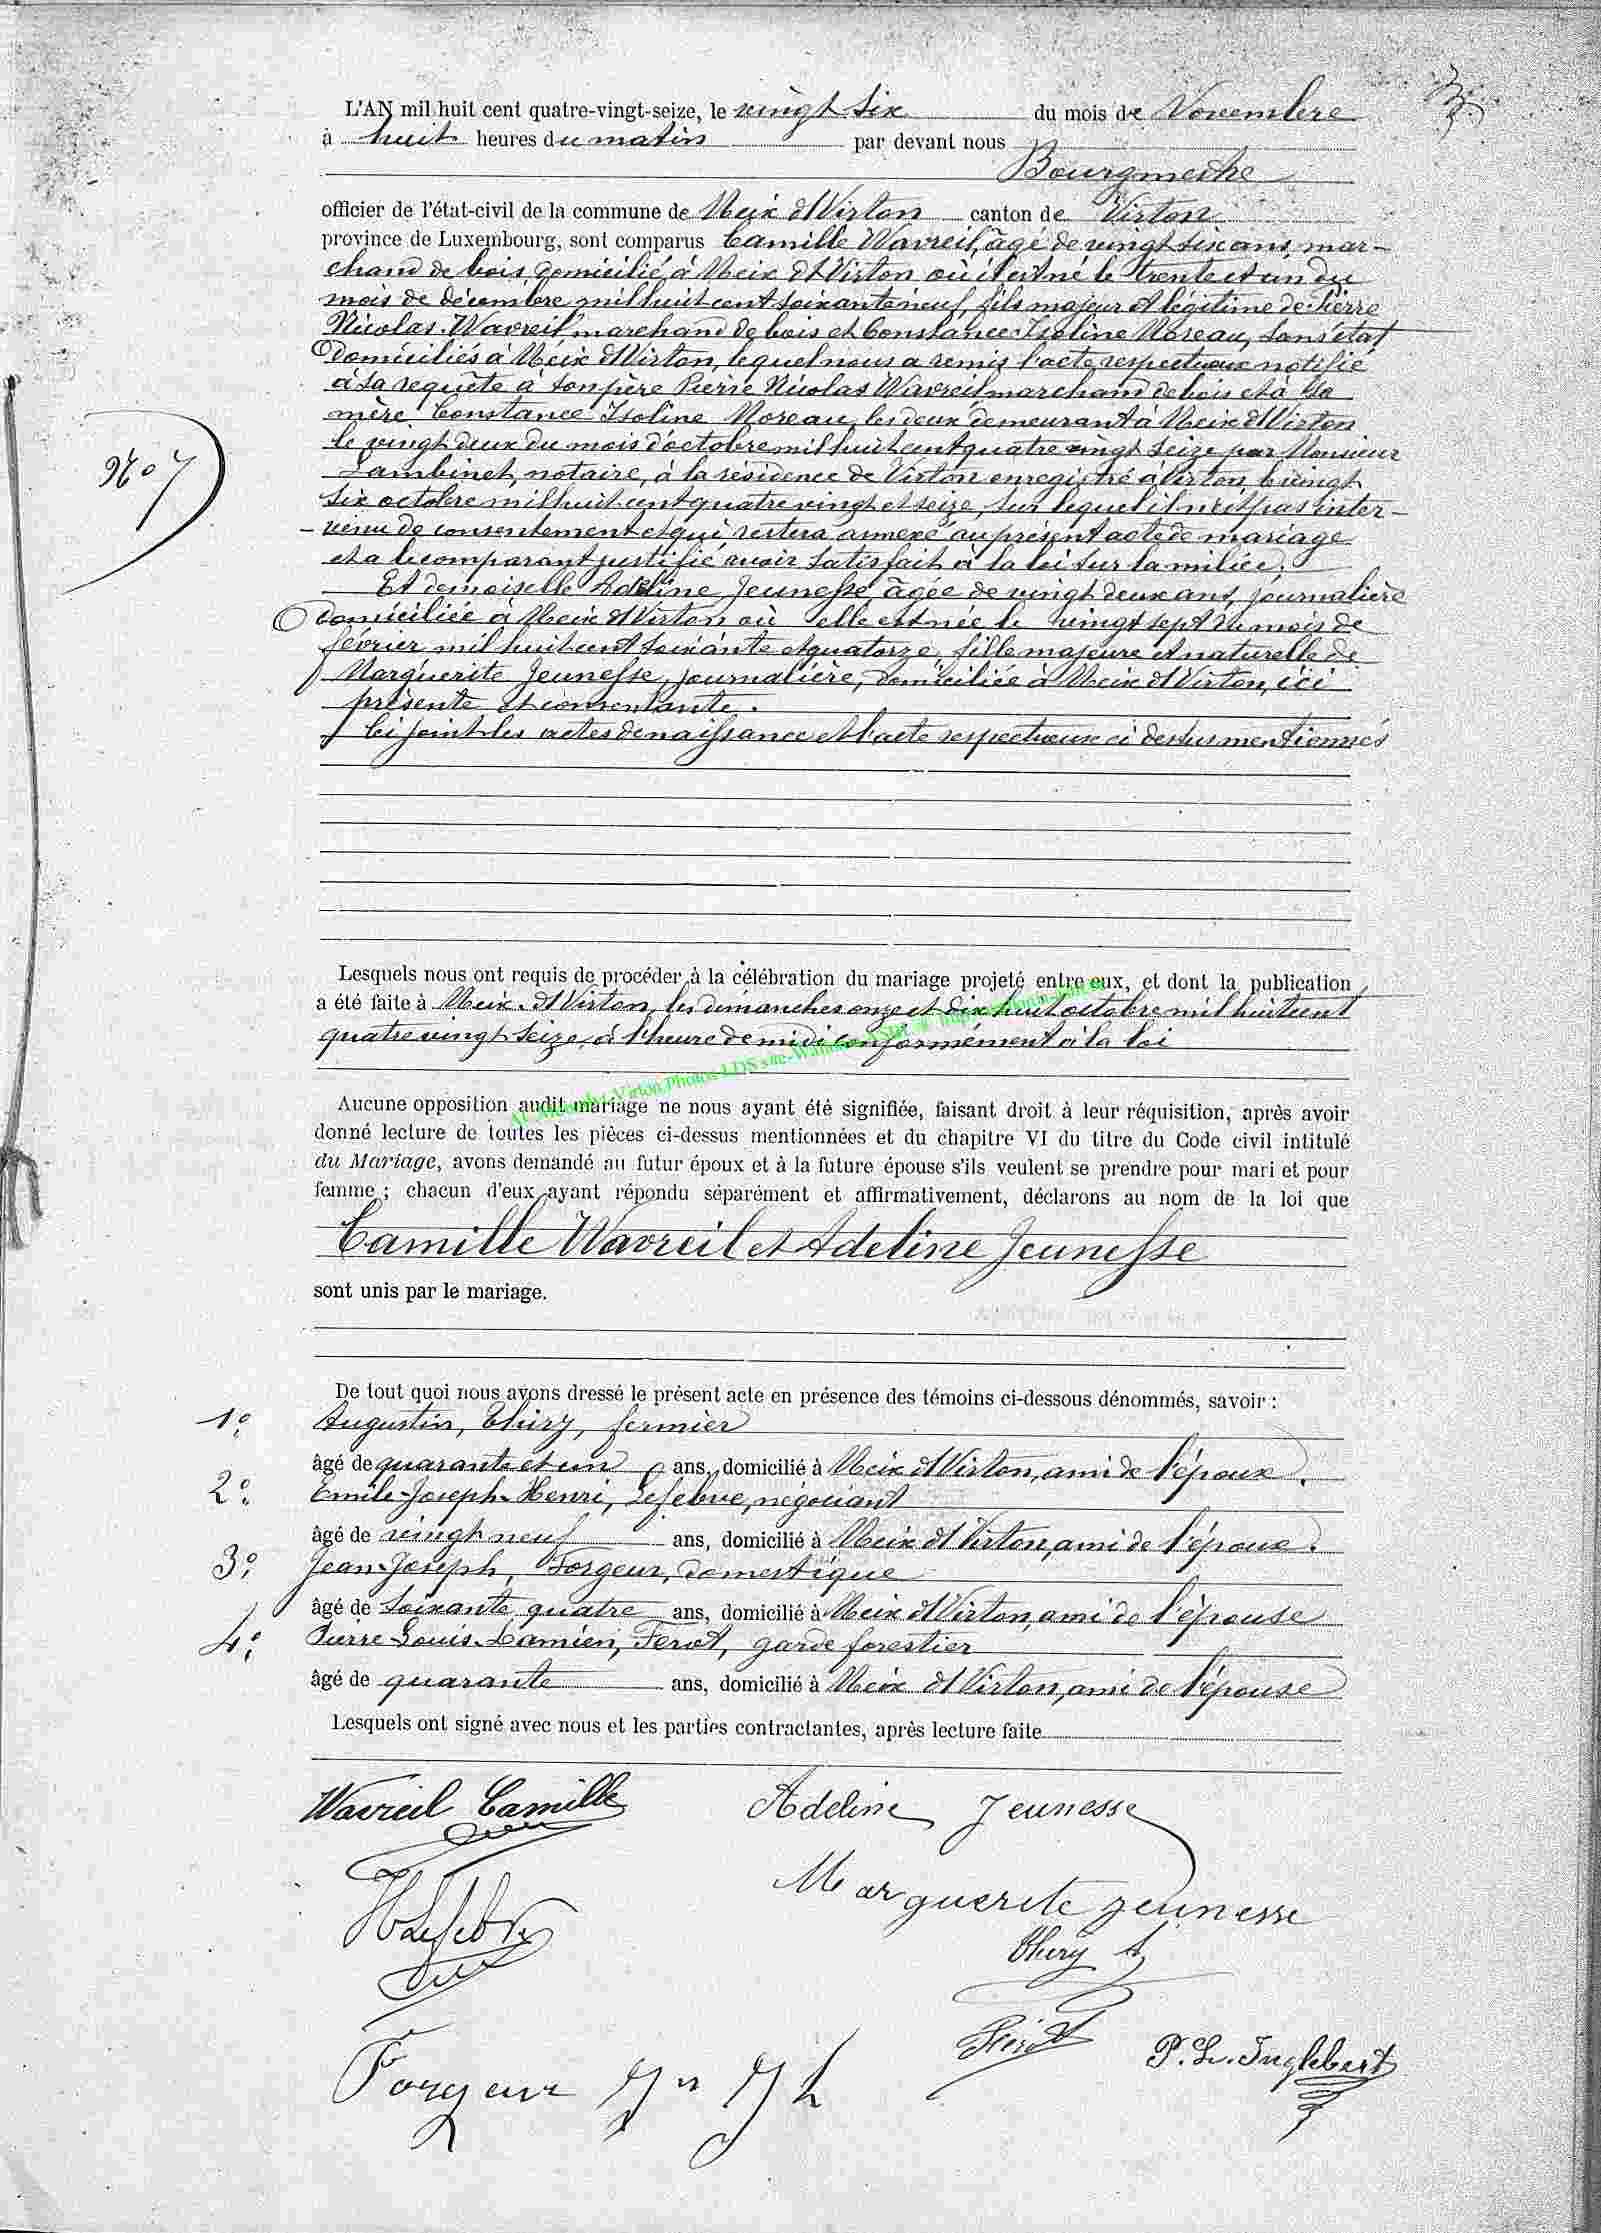 L'AN mil huit cent quatre-vingt-seize, le vingt six du mois de Novembre
à huit heures du matin par devant nous
Bourgmestre
officier de l'état-civil de la commune de Meix dt Virton canton de Virton
province de Luxembourg, sont comparus Camille Wavreil, âgé de vingt six ans, mar-
chand de bois domicilié à Meix dt Virton où il est né le trente et un du
mois de décembre mil huit cent soixante neuf, fils majeur et légitime de Pierre
Nicolas Wavreil marchand de bois et Constance Isoline Moreau, sans état
domiciliés à Meix dt Virton, lequel nous a remis l'acte respectueux notifié
à sa requête à son père Pierre Nicolas Wavreil marchand de bois et à sa
mère Constance Isoline Moreau, les deux demeurant à Meix dt Virton
le vingt deux du mois d'octobre mil huit cent quatre vingt seize par Monsieur
Lambinet, notaire, à la résidence de Virton enregistré à Virton, le vingt
six octobre mil huit cent quatre vingt et seize, sur lequel il n'est pas inter-
- venu de consentement et qui restera annexé au présent acte de mariage
et a le comparant justifié avoir satisfait à la loi sur la milice;
Et demoiselle Adeline Jeunesse âgée de vingt deux ans, journalière
domiciliée à Meix dt Virton où elle est née le vingt sept du mois de
février mil huit cent soixante et quatorze, fille majeure et naturelle de
Marguerite Jeunesse, journalière, domiciliée à Meix dt Virton, ici
présente et consentante.
Ci joint les actes de naissance et l'acte respectueux ci dessus mentionnés
No 7
Lesquels nous ont requis de procéder à la célébration du mariage projeté entre eux, et dont la publication
a été faite à Meix dt Virton, les dimanches onze et dix huit octobre mil huit cent
quatre vingt seize, à l'heure de midi conformément à la loi
Aucune opposition audit mariage ne nous ayant été signifiée, faisant droit à leur réquisition, après avoir
donné lecture de toutes les pièces ci-dessus mentionnées et du chapitre VI du titre du Code civil intitulé
du Mariage, avons demandé au futur époux et à la future épouse s'ils veulent se prendre pour mari et pour
femme ; chacun d'eux ayant répondu séparément et affirmativement, déclarons au nom de la loi que
Camille Wavreil et Adeline Jeunesse
sont unis par le mariage.
De tout quoi nous avons dressé le présent acte en présence des témoins ci-dessous dénommés, savoir :
1o. Augustin, Thiry, fermier
âgé de quarante et un ans, domicilié à Meix dt Virton, ami de l'époux.
2o. Emile-Joseph-Henri, Lefebve, négociant
âgé de vingt neuf ans, domicilié à Meix dt Virton, ami de l'époux.
3o. Jean-Joseph, Forgeur, domestique
âgé de soixante quatre ans, domicilié à Meix dt Virton, ami de l'épouse
4o. Pierre Louis Damien, Ferot, garde forestier
âgé de quarante ans, domicilié à Meix dt Virton, ami de l'épouse
Lesquels ont signé avec nous et les parties contractantes, après lecture faite
Wavreil Camille Adeline Jeunesse
Marguerite jeunesse
HLefebve
thiry A
P. L. Inglebert
Forgeur Jn Jh